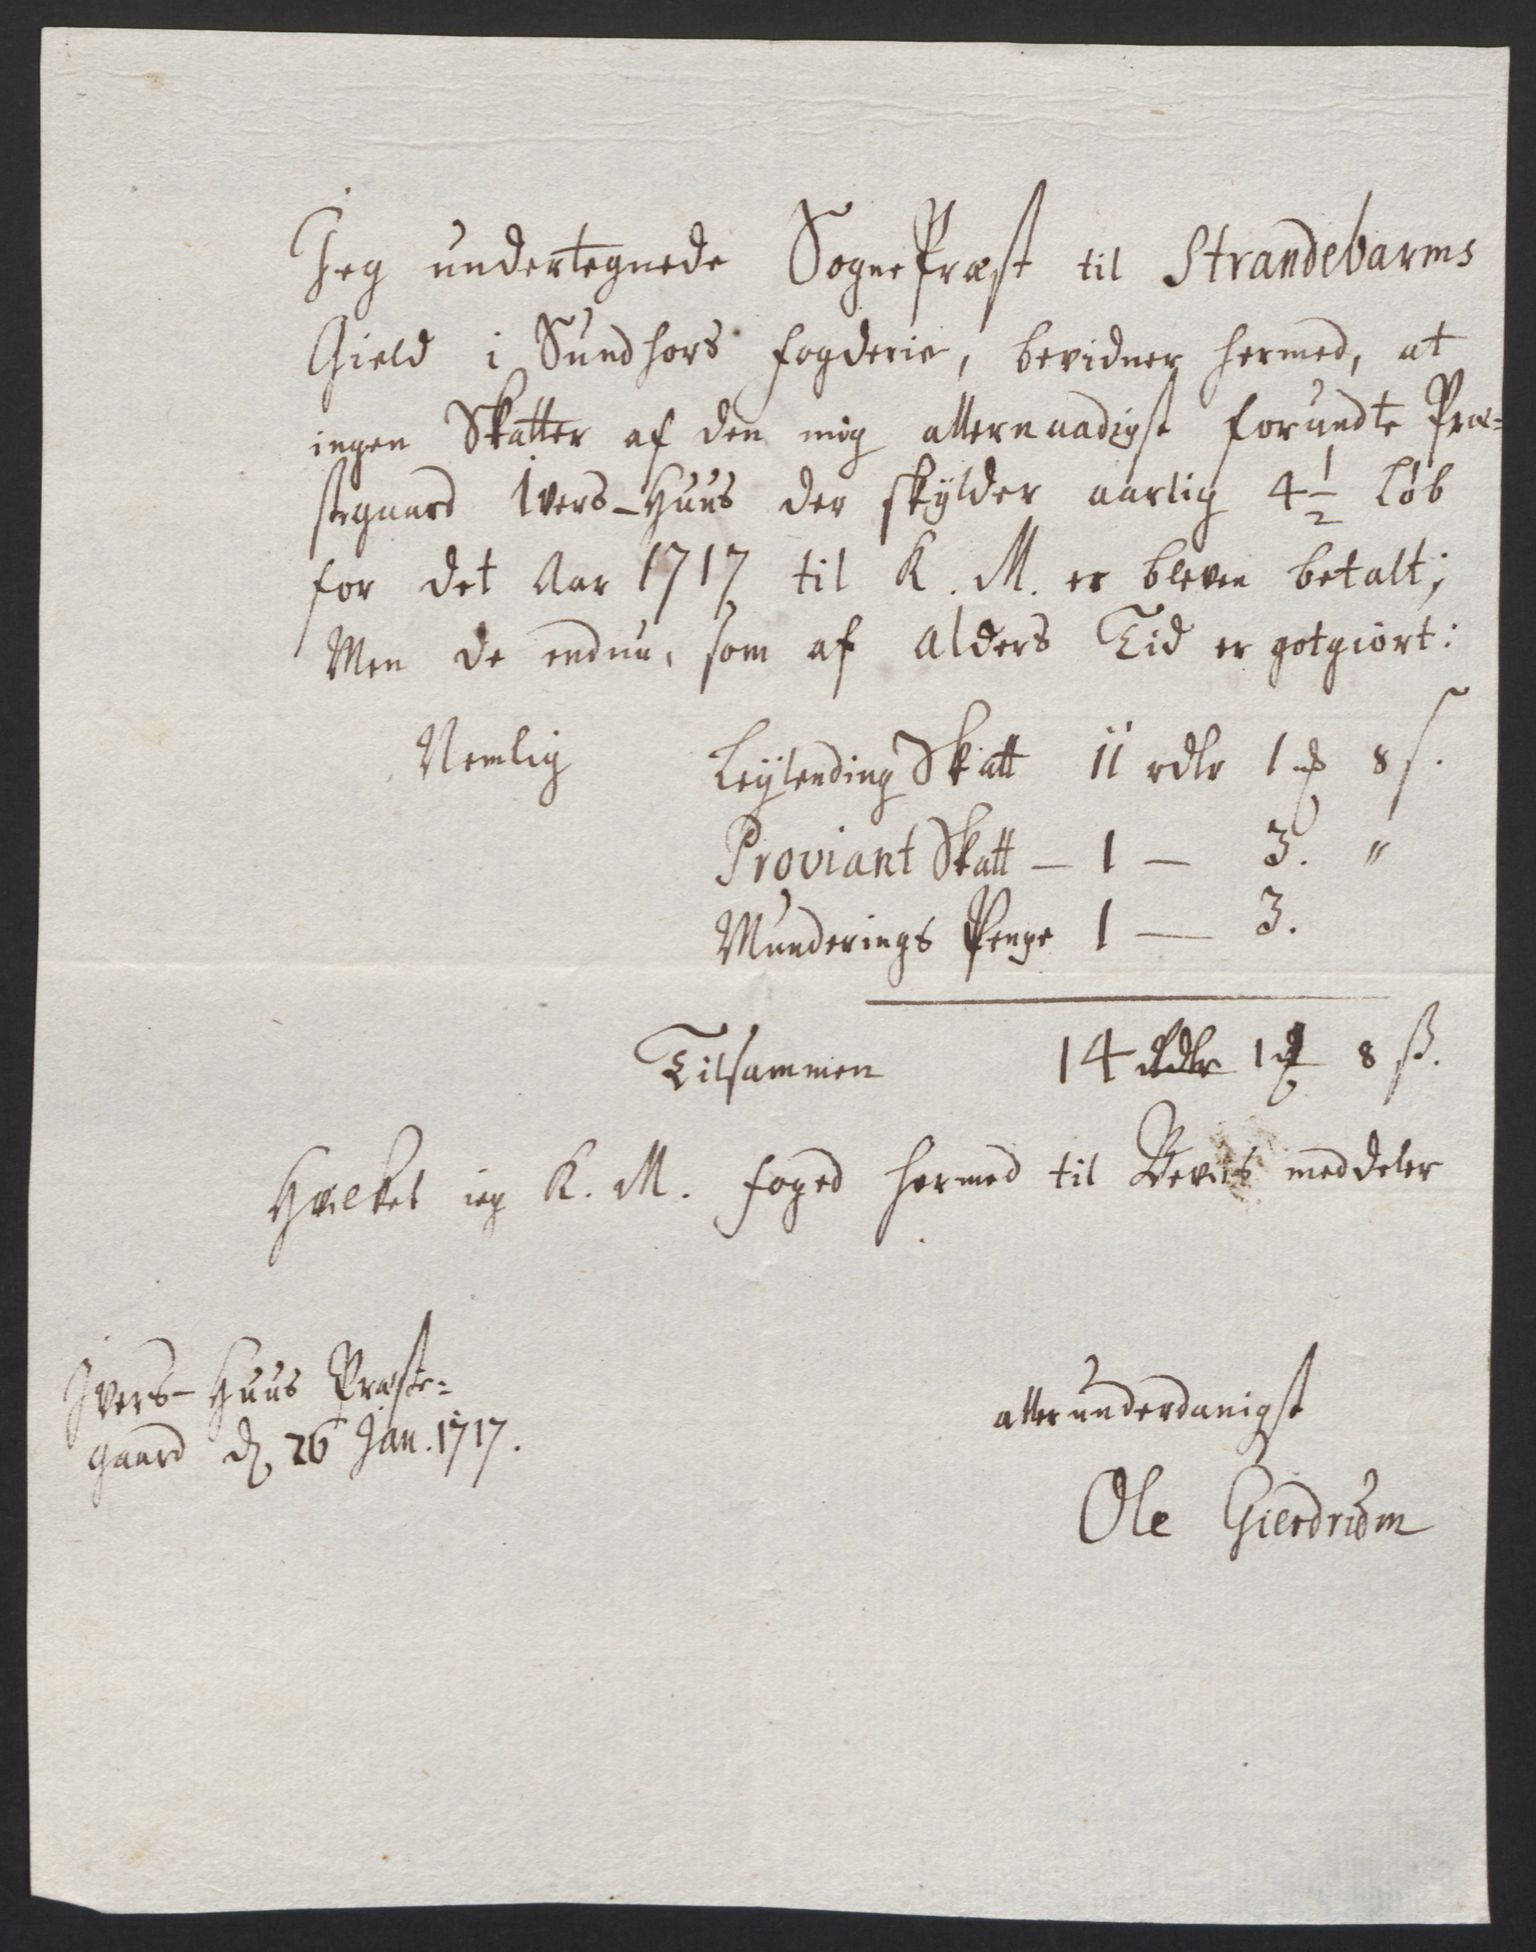 Jeg undertegnede SognePræst til Strandebarms
Gield i Sundhors fogderie, bevidner hermed, at
ingen Skatter af den mig allernaadigst forundte Præ-
stegaard Ivers-Huus der skÿlder aarlig 4 1/2 Løb
for det Aar 1717 til K. M. er bleven betalt;
Men de endnu, som af Alders Tid er gotgiort:
Nemlig Leÿlending Skatt 11 rdlr 1 mk 8 s.
Proviant Skatt — 1 — 3. "
Munderings Penge 1 — 3.
Tilsammen 14 Rdlr 1 mk 8 ß.
Hvilket ieg K. M. foged hermed til Beviis meddeler
Ivers-Huus Præste-
gaard d. 26 Jan. 1717.
allerunderdanigst
Ole Gierdrum